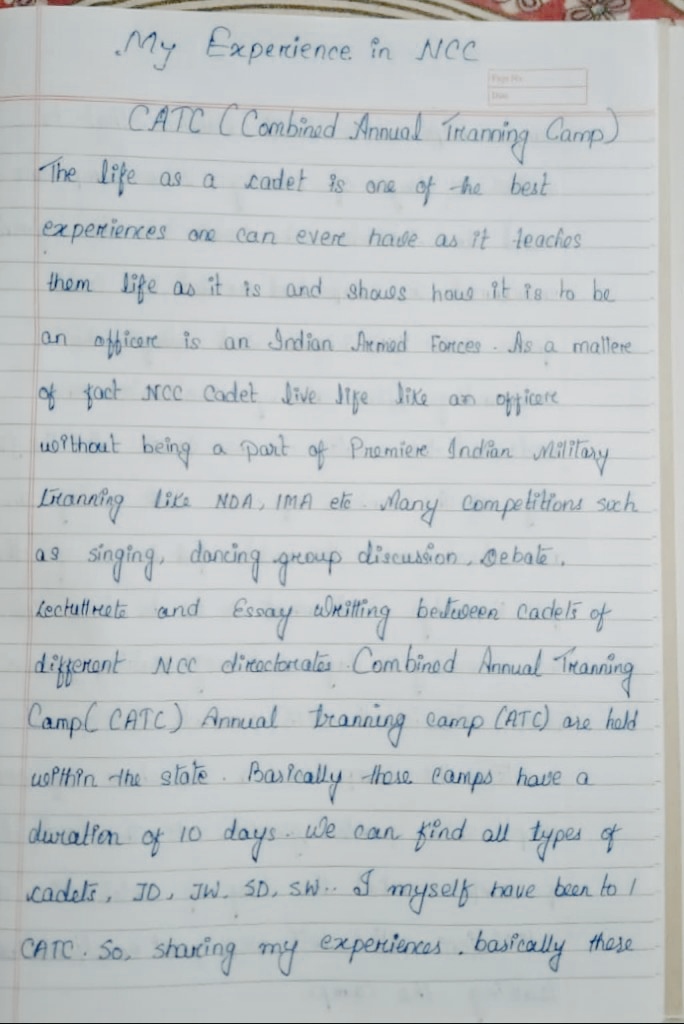 My Experience in NCC
Page No.
Date
CATC (Combined Annual Tranning Camp)
The life as a cadet is one of the best
experiences one can ever have as it teaches
them life as it is and shows how it is to be
an officer is an Indian Armed Forces. As a matter
of fact NCC Cadet live life like an officer
without being a part of Premier Indian Military
tranning like NDA, IMA etc. Many competitions such
as singing, dancing group discussion, Debate,
and Essay writting between cadets of
different NCC directorates. Combined Annual Tranning
Camp( CATC) Annual tranning camp (ATC) are held
within the state. Basically these camps have a
duration of 10 days. We can find all types of
cadets, JD, JW, SD, SW.. I myself have been to 1
CATC. So, sharing my experiences. basically these